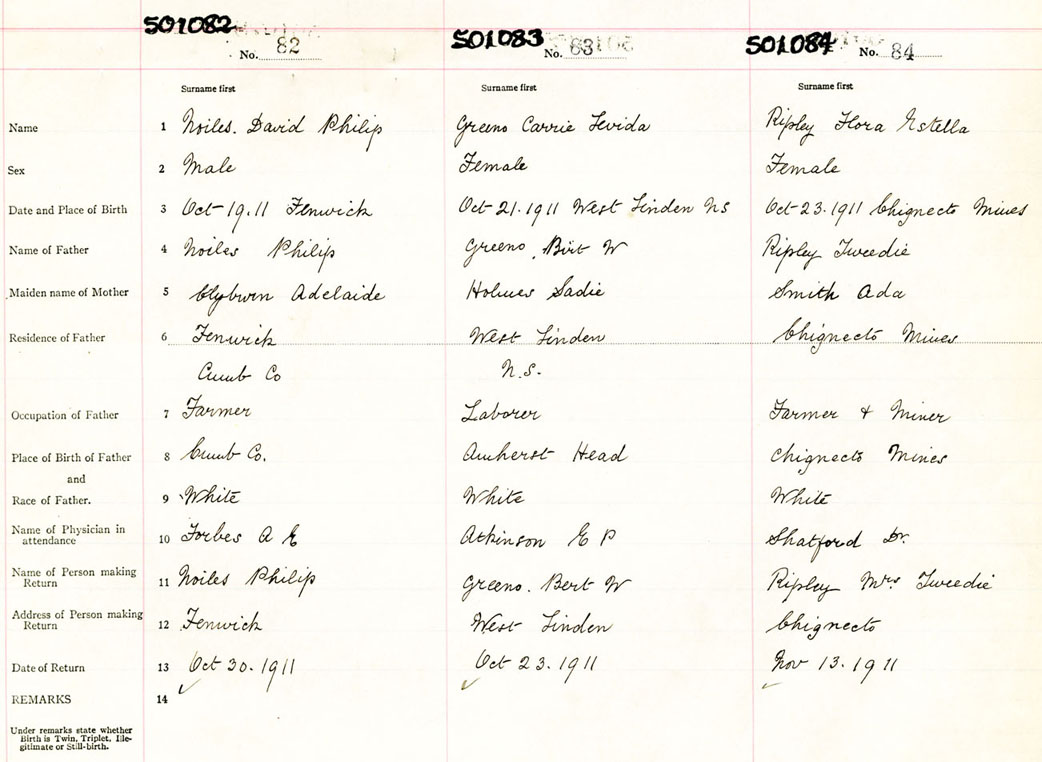 501082 501083 501084
No. 82 No. 83 No. 84
Surname first Surname first Surname first
Name 1 Noiles. David Philip Greeno Carrie Levida Ripley Flora Estella
Sex 2 Male Female Female
Date and Place of Birth 3 Oct 19.11 Fenwick Oct 21.1911 West Linden NS Oct 23.1911 Chignecto Mines
Name of Father 4 Noiles Philip Greeno, Birt W Ripley Tweedie
Maiden name of Mother 5 Clyburn Adelaide Holmes Sadie Smith Ada
Residence of Father 6 Fenwick West Linden Chignecto Mines
Cumb Co N.S.
Occupation of Father 7 Farmer Laborer Farmer & Miner
Place of Birth of Father 8 Cumb Co. Amherst Head Chignecto Mines
and
Race of Father. 9 White White White
Name of Physician in
attendance 10 Forbes A E Atkinson E P Shatford Dr.
Name of Person making
Return 11 Noiles Philip Greeno. Bert W Ripley Mrs Tweedie
Address of Person making
Return 12 Fenwick West Linden Chignecto
Date of Return 13 Oct 30.1911 Oct 23.1911 Nov 13.1911
REMARKS 14
Under remarks state whether
Birth is Twin, Triplet, Ille-
gitimate or Still-birth.